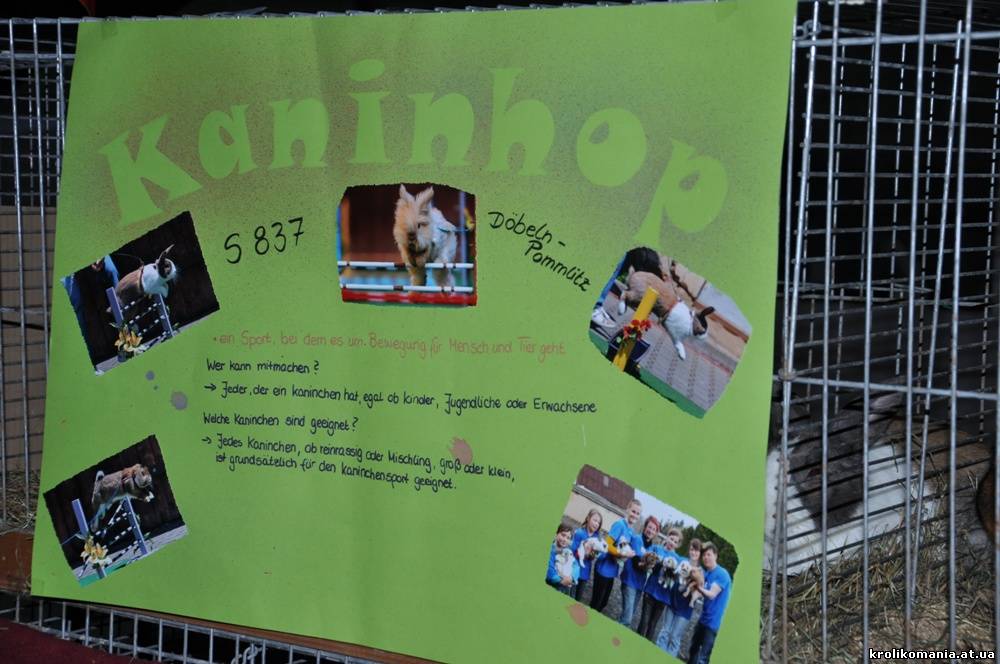 Kaninhop
S 837
Döbeln-
Pommlitz
• ein Sport, bei dem es um Bewegung für Mensch und Tier geht
Wer kann mitmachen?
→ Jeder, der ein kaninchen hat, egal ob kinder, Jugendliche oder Erwachsene
Welche Kaninchen sind geeignet?
→ Jedes Kaninchen, ob reinrassig oder Mischling, groß oder klein,
ist grundsätzlich für den Kaninchensport geeignet.
krolikomania.at.ua